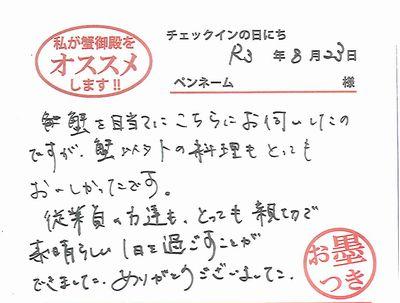 私が蟹御殿を
オススメ
します!!
チェックインの日にち
R3 年 8 月 23 日
ペンネーム 様
蟹を目当てにこちらにお伺いしたの
ですが、蟹以外の料理もとっても
おいしかったです。
従業員の方達も、とっても親切で
素晴らしい1日を過ごすことが
できました。ありがとうございました。
お墨
つき